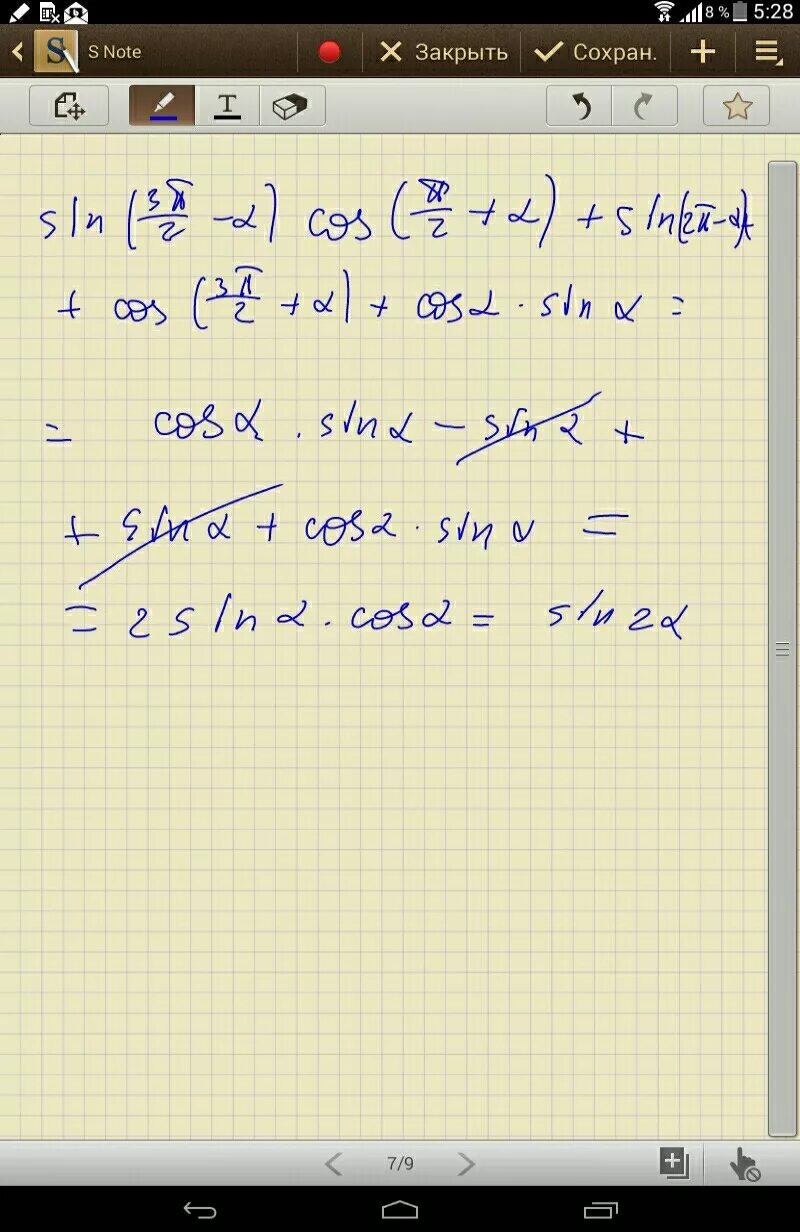 8 % 5:28
S Note Закрыть Сохран.
T
sin (3π/2 - α) cos (π/2 + α) + sin(2π - α)+
+ cos (3π/2 + α) + cosα · sin α =
= cosα · sinα - sin α +
+ sin α + cosα · sin α =
= 2 sin α · cosα = sin 2α
7/9